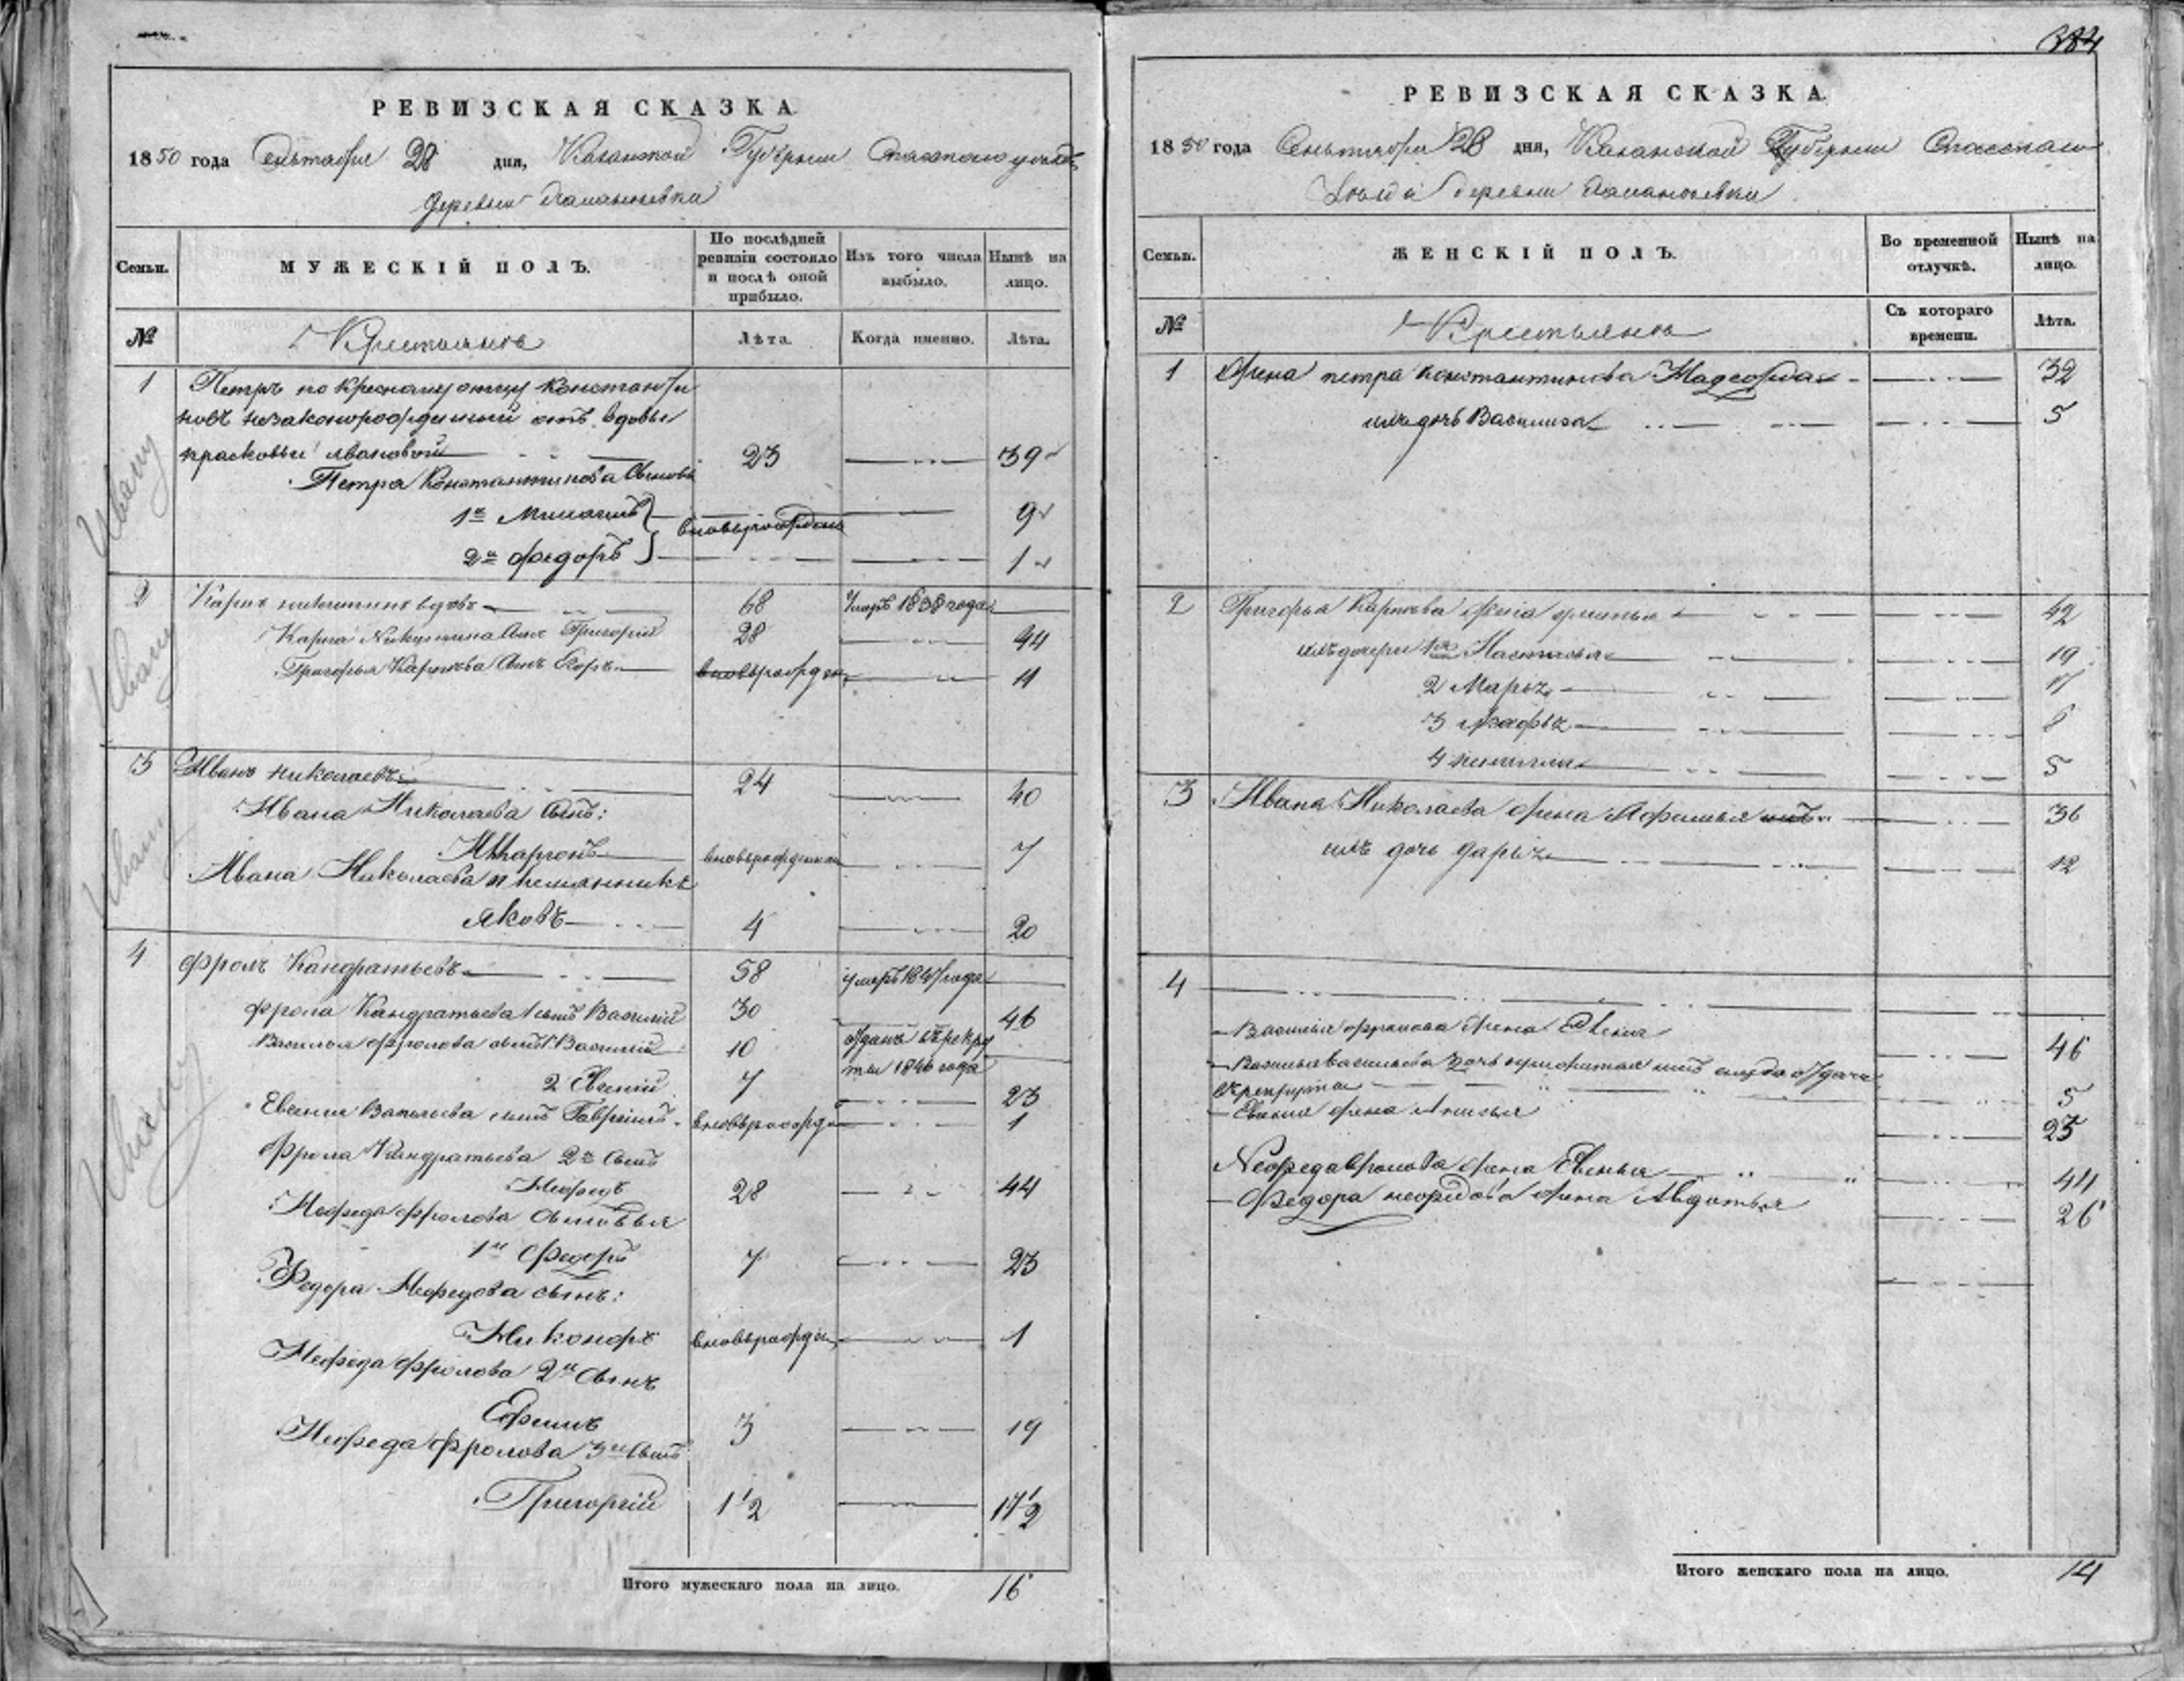 384
РЕВИЗСКАЯ СКАЗКА
1850 года Сентября 28 дня, Казанской Губернии Спаского уезда,
деревни
Семьи.
МУЖЕСКІЙ ПОЛЪ.
По послѣдней ревизіи состояло и послѣ оной прибыло.
Изъ того числа выбыло.
Нынѣ на лицо.
№
Крестьянъ
Лѣта.
Когда именно.
Лѣта.
1 Петръ по кресному отцу Константи
новъ незаконорожденный отъ вдовы
прасковьи ивановой 23 39
Петра Константинова Сыновья
1й вновьрожденъ 9
2й федоръ 1
2 Карпъ 68 умеръ 1838 года
Карпа Никитина Сынъ Григорій 28 44
Григорья Карпова Сынъ Егоръ вновьрожден 11
3 Иванъ николаевъ 24 40
Ивана Николаева Сынъ:
вновьрожденъ 7
Ивана Николаева племянникъ
яковъ 4 20
4 фролъ Кандратьевъ 58 умеръ 1847 года
фрола Кандратьева 1 сынъ Василій 30 46
Василья фролова сынъ 1 Василій 10 отданъ въ рекру
ты 1846 года
2 Евсеній 7 23
Васильева сынъ Гавріилъ вновьрожд 1
Фрола Кандратьева 2й Сынъ
Нефедъ 28 44
Нефеда фролова Сыновья
1й Федоръ 7 23
Федора Нефедова сынъ:
Никоноръ вновьрожден 1
Нефеда фролова 2й Сынъ
Ефимъ 3 19
Нефеда фролова 3й Сынъ
Григорій 1 1/2 17 1/2
Итого мужескаго пола на лицо. 16
РЕВИЗСКАЯ СКАЗКА
1850 года Сентября 28 дня, Казанской Губернии Спаскаго
Уезда деревни
Семьи.
ЖЕНСКІЙ ПОЛЪ.
Во временной отлучкѣ.
Нынѣ на лицо.
№
Крестьянъ
Съ котораго времени.
Лѣта.
1 Жена петра константинова 32
ихъ дочь Василиса 5
2 Григорья Карпова жена 42
ихъ дочери 1я Настасья 19
2 Марья 17
3 8
4 5
3 Ивана Николаева жена Афимья 36
ихъ дочь дарья 12
4
Василья фролова жена 46
Васильева дочь прижитая имъ до отдачи
5
жена Анисья 23
Нефеда фролова жена 44
Федора нефедова жена Авдотья 26
Итого женскаго пола на лицо. 14